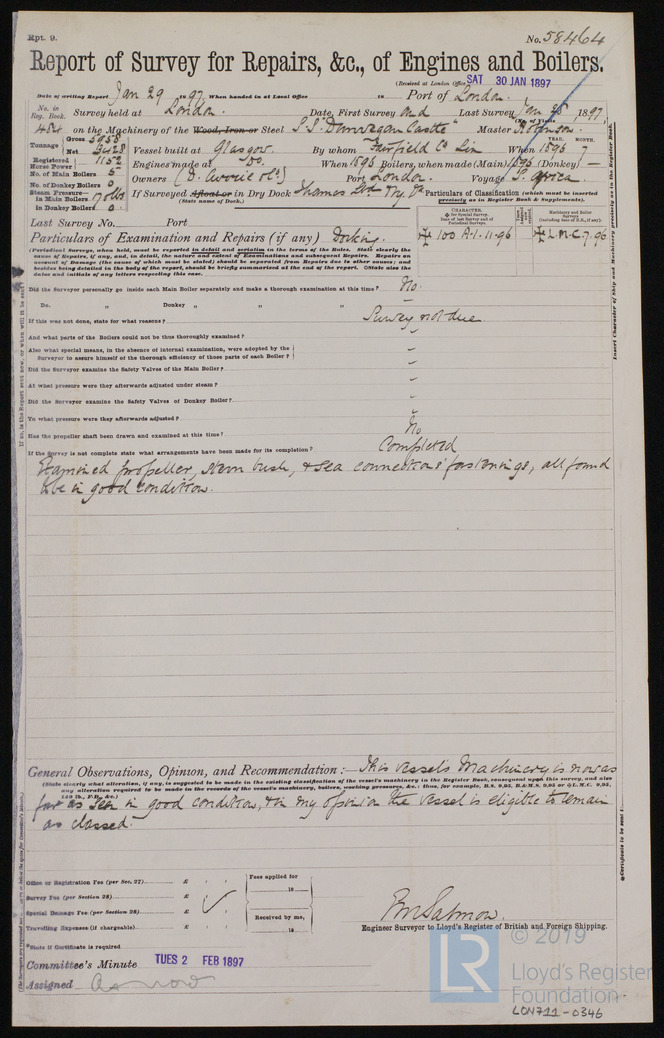 Rpt. 9.
No. 58464
Report of Survey for Repairs, &c., of Engines and Boilers.
(Received at London Office SAT 30 JAN 1897
Date of writing Report Jan 29 1897 When handed in at Local Office 18 Port of London.
No. in Reg. Book. Survey held at London. Date, First Survey and Last Survey Jan 28 1897
484 on the Machinery of the Wood, Iron or Steel S.S. Dunvegan Castle Master Robinson.
Tonnage Gross 5958
Net 3428 Vessel built at Glasgow. By whom Fairfield Co Lim When 1896 7
YEAR. MONTH.
Registered Horse Power 1152 Engines made at Do. When 1896 Boilers, when made (Main) 1896 (Donkey) —
No. of Main Boilers 5 Owners (D. Currie & Co) Port London. Voyage S. Africa.
No. of Donkey Boilers 0
Steam Pressure— in Main Boilers If Surveyed Afloat or in Dry Dock Thames
(State name of Dock.)
in Donkey Boilers 0
Particulars of Classification (which must be inserted precisely as in Register Book & Supplements).
Last Survey No. Port
CHARACTER.
✠ 100 A.1. 11.96 ✠ L.M.C. 7.96
Particulars of Examination and Repairs (if any) Docking.
(Periodical Surveys, when held, must be reported in detail and seriatim in the terms of the Rules. State clearly the
cause of Repairs, if any, and, in detail, the nature and extent of Examinations and subsequent Repairs. Repairs on
account of Damage (the cause of which must be stated) should be separated from Repairs due to other causes; and
besides being detailed in the body of the report, should be briefly summarised at the end of the report. State also the
dates and initials of any letters respecting this case.
Did the Surveyor personally go inside each Main Boiler separately and make a thorough examination at this time? No.
Do. „ Donkey „ „ „ -
If this was not done, state for what reasons? Survey not due
And what parts of the Boilers could not be thus thoroughly examined? -
Also what special means, in the absence of internal examination, were adopted by the
Surveyor to assure himself of the thorough efficiency of those parts of each Boiler? -
Did the Surveyor examine the Safety Valves of the Main Boiler? -
At what pressure were they afterwards adjusted under steam? -
Did the Surveyor examine the Safety Valves of Donkey Boiler? -
To what pressure were they afterwards adjusted? -
Has the propeller shaft been drawn and examined at this time? No
If the Survey is not complete state what arrangements have been made for its completion? Completed
Examined propeller, stern bush, & sea connections fastenings, all found
to be in good condition.
General Observations, Opinion, and Recommendation:— This vessels Machinery is now as
(State clearly what alteration, if any, is suggested to be made in the existing classification of the vessel's machinery in the Register Book, consequent upon this survey, and also
any alteration required to be made in the records of the vessel's machinery, boilers, working pressures, &c.: thus, for example, B.S. 9,95, B.&M.S. 9,95 or ✠L.M.C. 9,95,
140 lb., F.D., &c.)
far as seen in good condition, & in my opinion the vessel is eligible to remain
as classed.
Office or Registration Fee (per Sec. 27) £ : :
Survey Fee (per Section 28) £ : :
Special Damage Fee (per Section 28) £ : :
Travelling Expenses (if chargeable) £ : :
Fees applied for
18
Received by me,
18
Salmon.
Engineer Surveyor to Lloyd's Register of British and Foreign Shipping.
State if Certificate is required
Committee's Minute TUES 2 FEB 1897
Assigned As now
© 2019
LR
Lloyd's Register
Foundation
LON711-0346